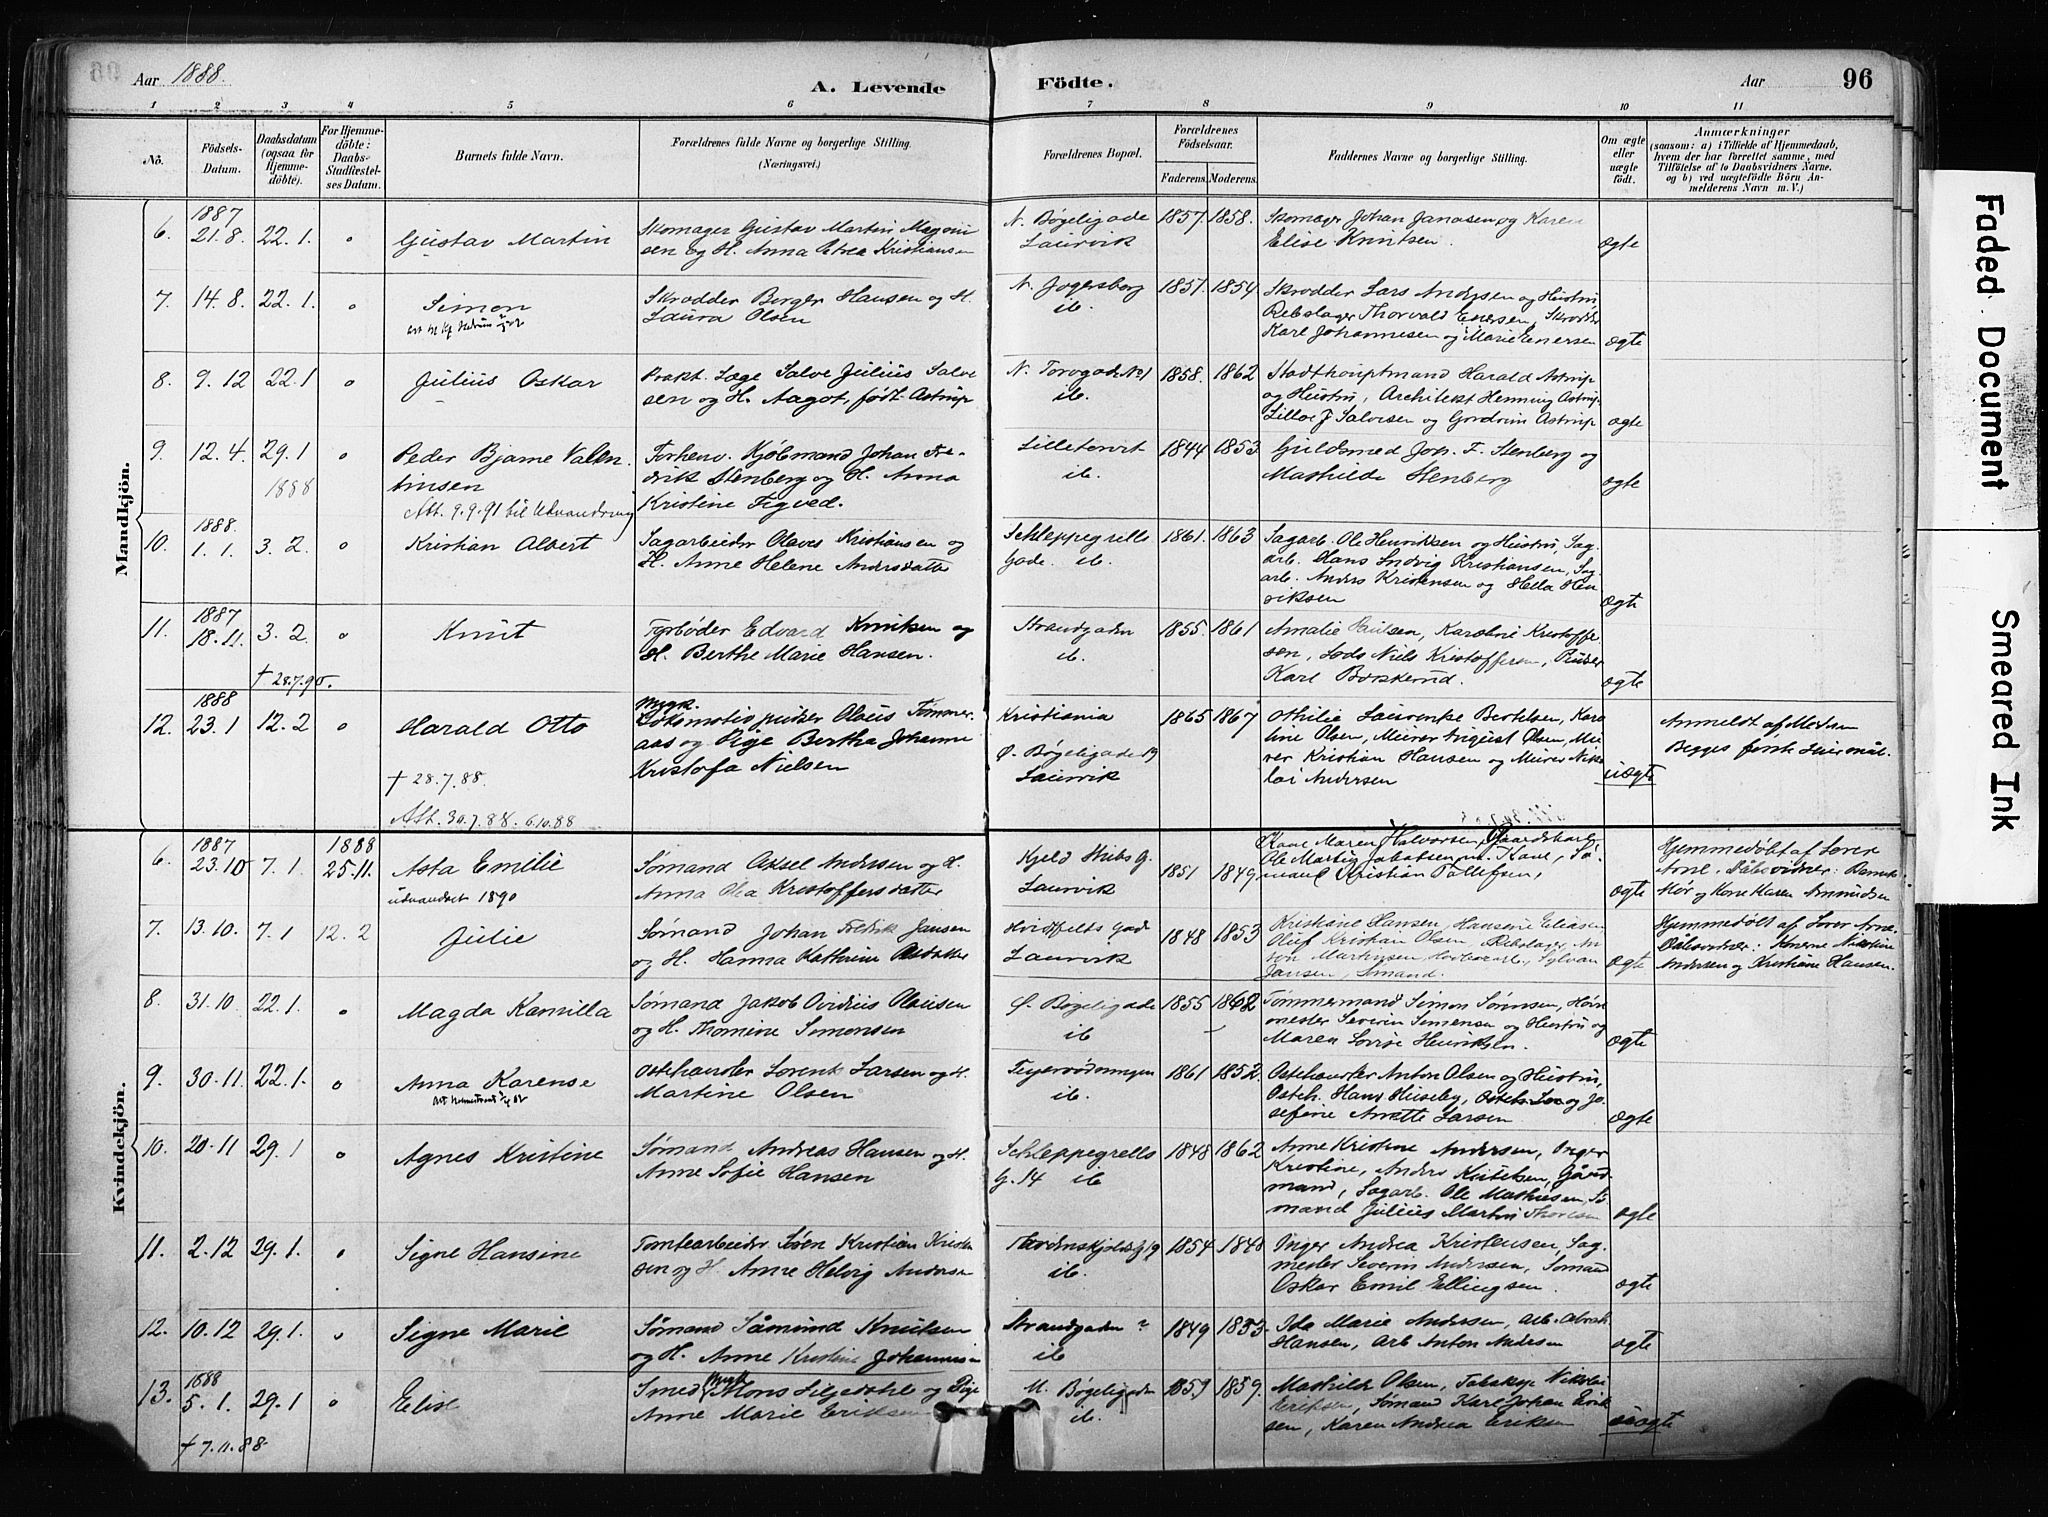 Aar 1888.
A. Levende
Födte.
Aar
96
1 2 3 4 5 6 7 8 9 10 11
No.
Födsels-Datum.
Daabsdatum (ogsaa for Hjemme-döbte).
For Hjemme-döbte: Daabs-Stadfæstel-ses Datum.
Barnets fulde Navn.
Forældrenes fulde Navne og borgerlige Stilling. (Næringsvei.)
Forældrenes Bopæl.
Forældrenes Födselsaar.
Faderens. Moderens.
Faddernes Navne og borgerlige Stilling.
Om ægte eller uægte födt.
Anmærkninger
(saasom: a) i Tilfælde af Hjemmedaab,
hvem der har forrettet samme, med
Tilföielse af to Daabsvidners Navne.
og b) ved uægtefödte Börn An-
melderens Navn m. V.)
Mandkjön.
6. 1887 21.8. 22.1. Gustav Martin
Skomager Gustav Martin
sen og H. Anna Petrea Kristiansen
N. Bøgeligade Laurvik
1857. 1858.
Skomager Johan Jansen og Karen
Elise Knutsen.
ægte
7. 14.8. 22.1. Simon
Skrædder Berger Hansen og H.
Laura Olsen
N. Jegersborg ib.
1857. 1854
Skrædder Lars Andersen og Hustru,
Rebslager Thorvald Enersen, Skrædder
Karl Johannesen og Marie Enersen
ægte
8. 9.12 22.1 Julius Oskar
Prakt. Læge Salve Julius Salve
sen og H. Aagot, født Astrup
N. Torvgade No 1 ib.
1858. 1862
Stadthauptmand Harald Astrup
og Hustru, Architekt Henning Astrup
J. Salvesen og Astrup
ægte
9. 12.4. 29.1 1888 Peder Bjarne Valen
tinsen
Att. 9.9.91 til Udvandring
Forhenv. Kjøbmand Johan Fre-
drik Stenberg og H. Anna
Kristine Tegved.
Lilletorvet ib.
1844 1853
Guldsmed Joh. F. Stenberg og
Mathilde Stenberg
ægte
10. 1888. 1.1. 3.2. Kristian Albert
Sagarbeider Olaves Kristiansen og
H. Anne Helene Andersdatter
Schleppegrells Gade. ib.
1861. 1863
Sagarb. Ole Henriksen og Hustru, Sag-
arb. Hans Ludvig Kristiansen, Sag
arb. Anders Kristensen og Hella Hen
riksen
ægte
11. 1887 18.11. 3.2. Knut
† 28.7.90.
Fyrbøder Edvard Knutsen og
H. Berthe Marie Hansen.
Strandgaden ib.
1855. 1861
Amalie Paulsen, Karoline Kristoffe
sen, Lods Niels Kristoffersen,
Karl Borskerud.
ægte
12. 1888 23.1 12.2 Harald Otto
† 28.7.88.
Att. 30.7.88. 6.10.88
Ungk.
Lokomotivpudser Olaus Tømmer
aas og Pige Bertha Johanne
Kristofa Nielsen
Kristiania
Ø. Bøgeligade 19 Laurvik
1865 1867
Othilie Laurenke Bertelsen, Karo
line Olsen, Murer August Olsen, Mu
rer Kristian Hansen og Murer Niko
lai Andersen
uægte
Anmeldt af Moderen
Begges første Leiermål.
Kvindekjön.
6. 1887 23.10 7.1. 1888 25.11. Asta Emilie
udvandret 1890
Sømand Axel Andersen og H.
Anna Olea Kristoffersdatter
Kjeld Stubs G. Laurvik
1851 1849
Kone Maren Halvorsen, Gaardskarl
Ole Martin Jakobsen m. Kone, Sø-
mand Kristian Tollefsen,
ægte
Hjemmedøbt af Lærer
Arne. Dåbsvidner: Barnets
Mor og Kone Karen Amundsen
7. 13.10. 7.1 12.2 Julie
Sømand Johan Fredrik Jansen
og H. Hanna Kathrine Olsdatter
Hvidtfelts Gade Laurvik
1848 1853
Kristiane Hansen, Hansine Eliasen
Oluf Kristian Olsen, Rebslager An
ton Marthinsen, Sylvan
Jansen, Sømand.
ægte
Hjemmedøbt af Lærer Arne.
Dåbsvidner: Konerne Nikoline
Andersen og Kristiane Hansen.
8. 31.10. 22.1. Magda Kamilla
Sømand Jakob Ovidius Olausen
og H. Thomine Simonsen
Ø. Bøgeligade ib
1855 1862
Tømmermand Simon Sørensen, Havne
mester Severin Simensen og Hustru og
Maren Lovise Henriksen.
ægte
9. 30.11. 22.1. Anna Karense
Ostehandler Lorents Larsen og H.
Martine Olsen
ib.
1861 1852.
Ostehandler Anton Olsen og Hustru,
Osteh. Hans Huseby, og Jo
sefine Anette Larsen
ægte
10. 20.11 29.1 Agnes Kristine
Sømand Andreas Hansen og H.
Anne Sofie Hansen
Schleppegrells G. 14 ib
1848 1862
Anne Kristine Andersen, Inger
Kristine, Anders Kittelsen, Gård
mand, Sagarb. Ole Mathisen, Sø
mand Julius Martin Thoresen
ægte
11. 2.12 29.1. Signe Hansine
Tomtearbeider Søren Kristian Kristen
sen og H. Anne Helvig Andersen
Tordenskjolds G. 19 ib.
1854 1848
Inger Andrea Kristensen, Sag-
mester Severin Andersen, Sømand
Oskar Emil Ellingsen.
ægte
12. 10.12 29.1. Signe Marie
Sømand Såmund Knutsen
og H. Anne Kristine Johannesen
Strandgaden ib
1849 1853.
Ida Marie Andersen, Arb.
Hansen, Arb Anton Andersen
ægte
13. 1888 5.1. 29.1 Elise
† 7.11.88
Smed Ungk. Mons Liljedahl og Pige
Anne Marie Eriksen
M. Bøgeligaden ib.
1859 1859.
Mathilde Olsen, Nikolai
Eriksen, Sømand Karl Johan Erik
sen, Karen Andrea Eriksen
uægte
Faded Document
Smeared Ink